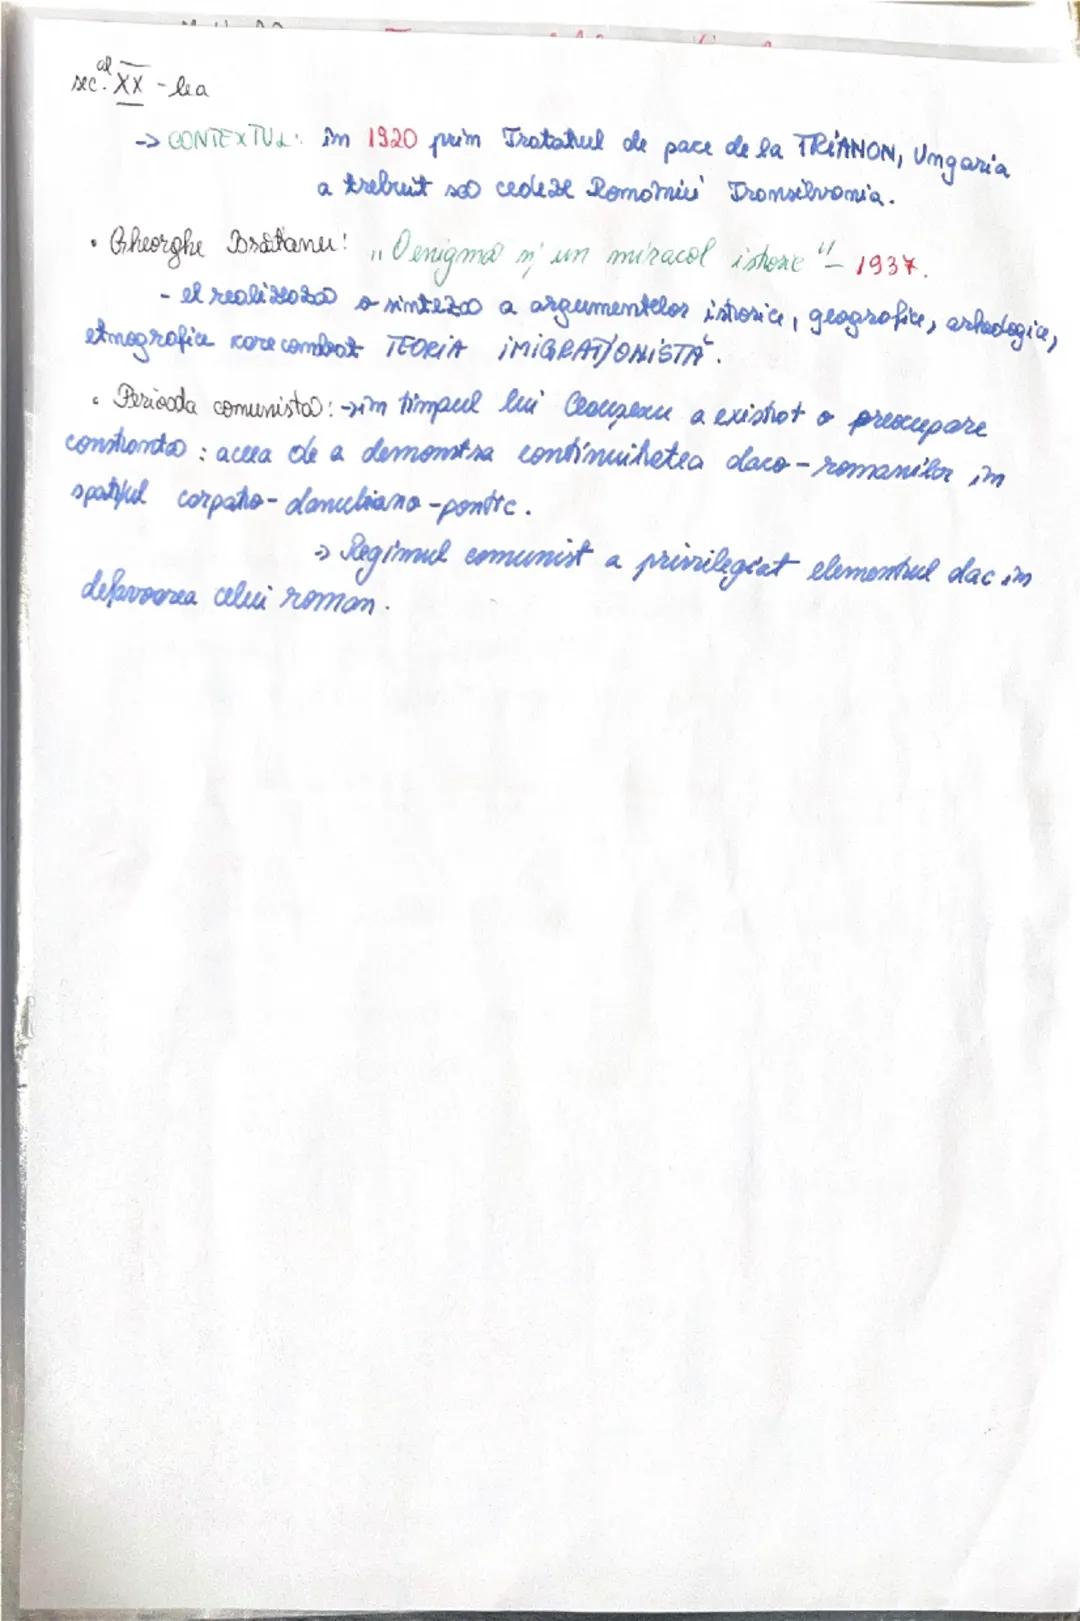 sec. al XX -lea
-> CONTEXTUL: în 1920 prin Tratatul de pace de la TRIANON, Ungaria
a trebuit să cedeze României Transilvania.
• Gheorghe Brătianu: „O enigmă și un miracol istoric" - 1937.
- el realizează o sinteză a argumentelor istorice, geografice, arheologice,
etnografice care combat TEORIA IMIGRAȚIONISTĂ.
• Perioada comunistă: -> în timpul lui Ceaușescu a existat o preocupare
constantă: aceea de a demonstra continuitatea daco-romanilor în
spațiul carpato-danubiano-pontic.
-> Regimul comunist a privilegiat elementul dac în
defavoarea celui roman.